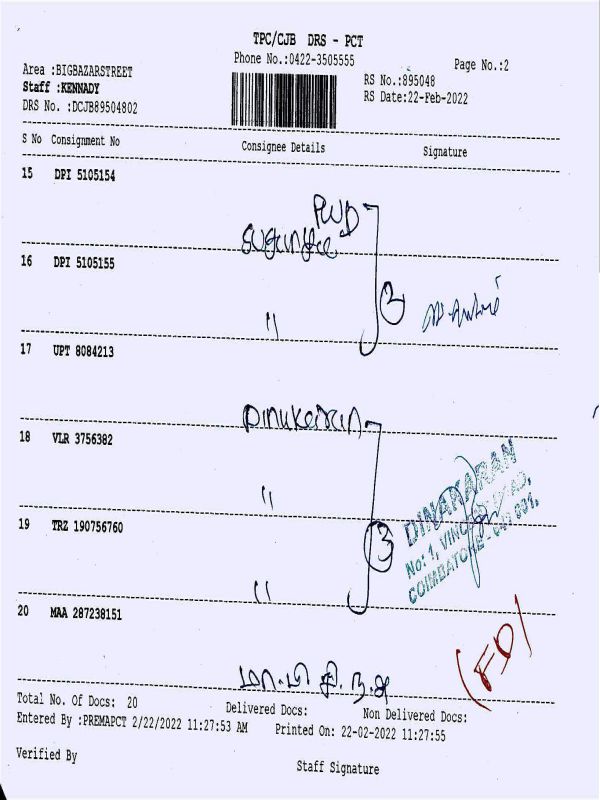 TPC/CJB DRS - PCT
Phone No.:0422-3505555
Page No.:2
Area :BIGBAZARSTREET
RS No.:895048
Staff :KENNADY
RS Date:22-Feb-2022
DRS No. :DCJB89504802
S No Consignment No Consignee Details Signature
15 DPI 5105154
PWD
16 DPI 5105155
"
2
17 UPT 8084213
18 VLR 3756382
"
19 TRZ 190756760
3
DINAKARAN
No: 1,
COIMBATORE
"
20 MAA 287238151
Total No. Of Docs: 20 Delivered Docs: Non Delivered Docs:
Entered By :PREMAPCT 2/22/2022 11:27:53 AM Printed On: 22-02-2022 11:27:55
Verified By Staff Signature